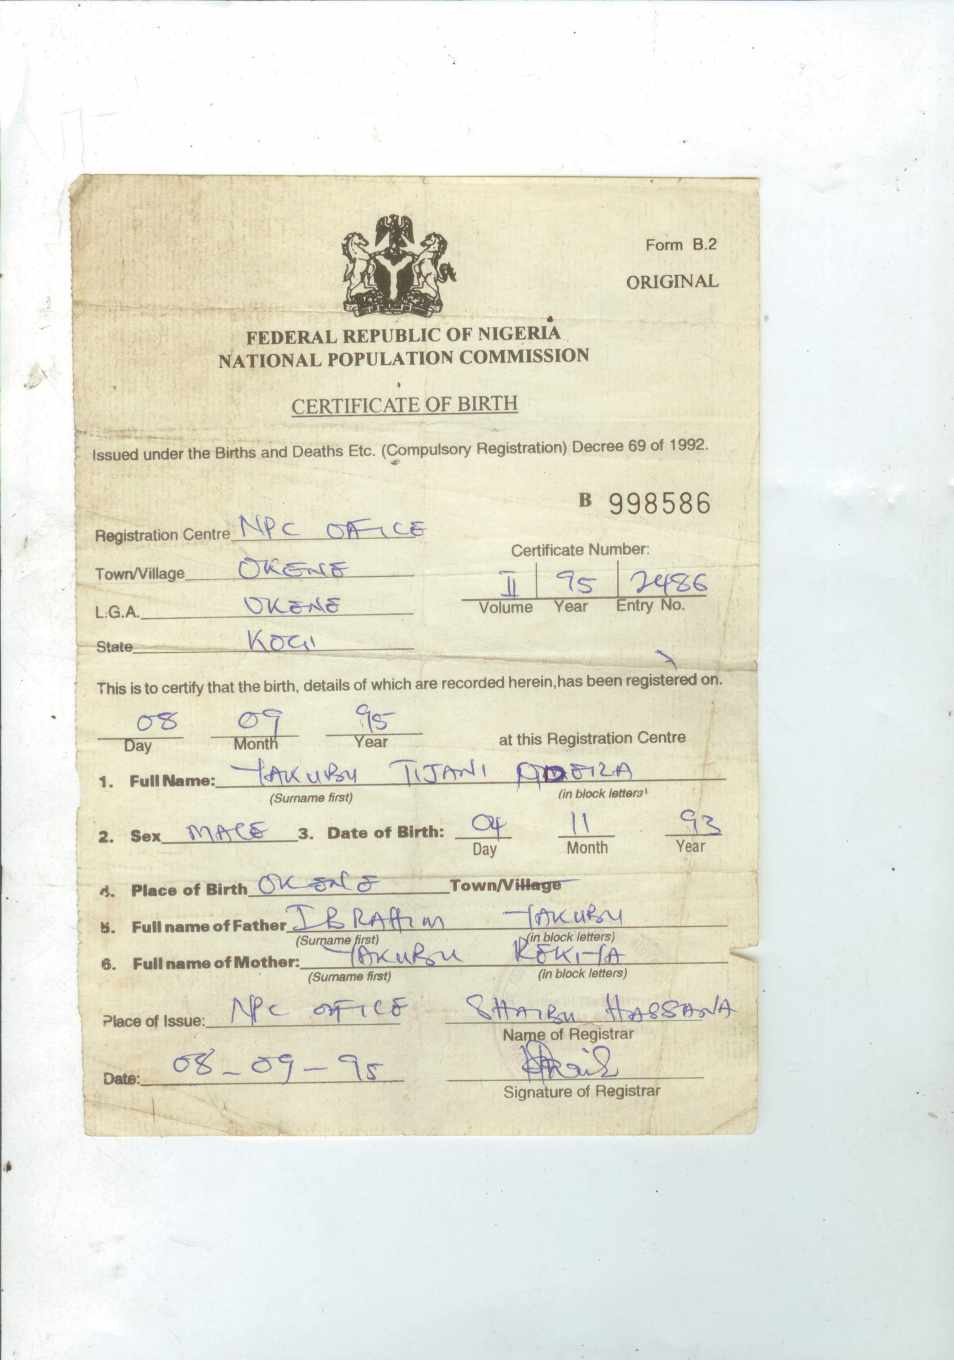 Form B.2
ORIGINAL
FEDERAL REPUBLIC OF NIGERIA
NATIONAL POPULATION COMMISSION
CERTIFICATE OF BIRTH
Issued under the Births and Deaths Etc. (Compulsory Registration) Decree 69 of 1992.
B 998586
Registration Centre NPC OFFICE
Certificate Number:
Town/Village OKENE
II 95 2486
Volume Year Entry No.
L.G.A. OKENE
State KOGI
This is to certify that the birth, details of which are recorded herein,has been registered on.
08 09 95
Day Month Year at this Registration Centre
1. Full Name: YAKUBU TIJANI
(Surname first) (in block letters)
2. Sex MALE 3. Date of Birth: 04 11 93
Day Month Year
4. Place of Birth OKENE Town/Village
5. Full name of Father IBRAHIM YAKUBU
(Surname first) (in block letters)
6. Full name of Mother: YAKUBU REKIYA
(Surname first) (in block letters)
Place of Issue: NPC OFFICE SHAIBU HASSANA
Name of Registrar
Date: 08-09-95
Signature of Registrar